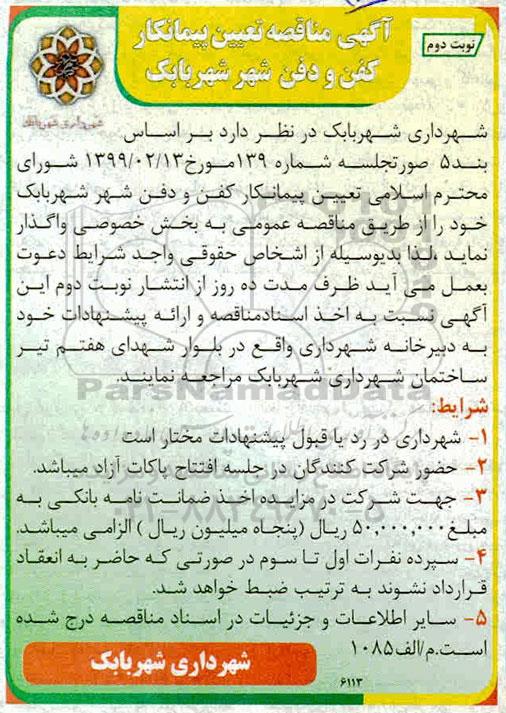 نوبت دوم
آگهی مناقصه تعیین پیمانکار
کفن و دفن شهر شهربابک
شهرداری شهربابک
شهرداری شهربابک در نظر دارد بر اساس
بند۵ صورتجلسه شماره ۱۳۹مورخ۱۳۹۹/۰۲/۱۳ شورای
محترم اسلامی تعیین پیمانکار کفن و دفن شهر شهربابک
خود را از طریق مناقصه عمومی به بخش خصوصی واگذار
نماید ،لذا بدیوسیله از اشخاص حقوقی واجد شرایط دعوت
بعمل می آید ظرف مدت ده روز از انتشار نوبت دوم این
آگهی نسبت به اخذ اسنادمناقصه و ارائه پیشنهادات خود
به دبیرخانه شهرداری واقع در بلوار شهدای هفتم تیر
ساختمان شهرداری شهربابک مراجعه نمایند.
ParsNamadData
شرایط:
۱- شهرداری در رد یا قبول پیشنهادات مختار است
۲- حضور شرکت کنندگان در جلسه افتتاح پاکات آزاد میباشد.
۳- جهت شرکت در مزایده اخذ ضمانت نامه بانکی به
مبلغ۵۰,۰۰۰,۰۰۰ ریال (پنجاه میلیون ریال ) الزامی میباشد.
۴- سپرده نفرات اول تا سوم در صورتی که حاضر به انعقاد
قرارداد نشوند به ترتیب ضبط خواهد شد.
۵- سایر اطلاعات و جزئیات در اسناد مناقصه درج شده
است.م/الف۱۰۸۵
شهرداری شهربابک
۶۱۱۳